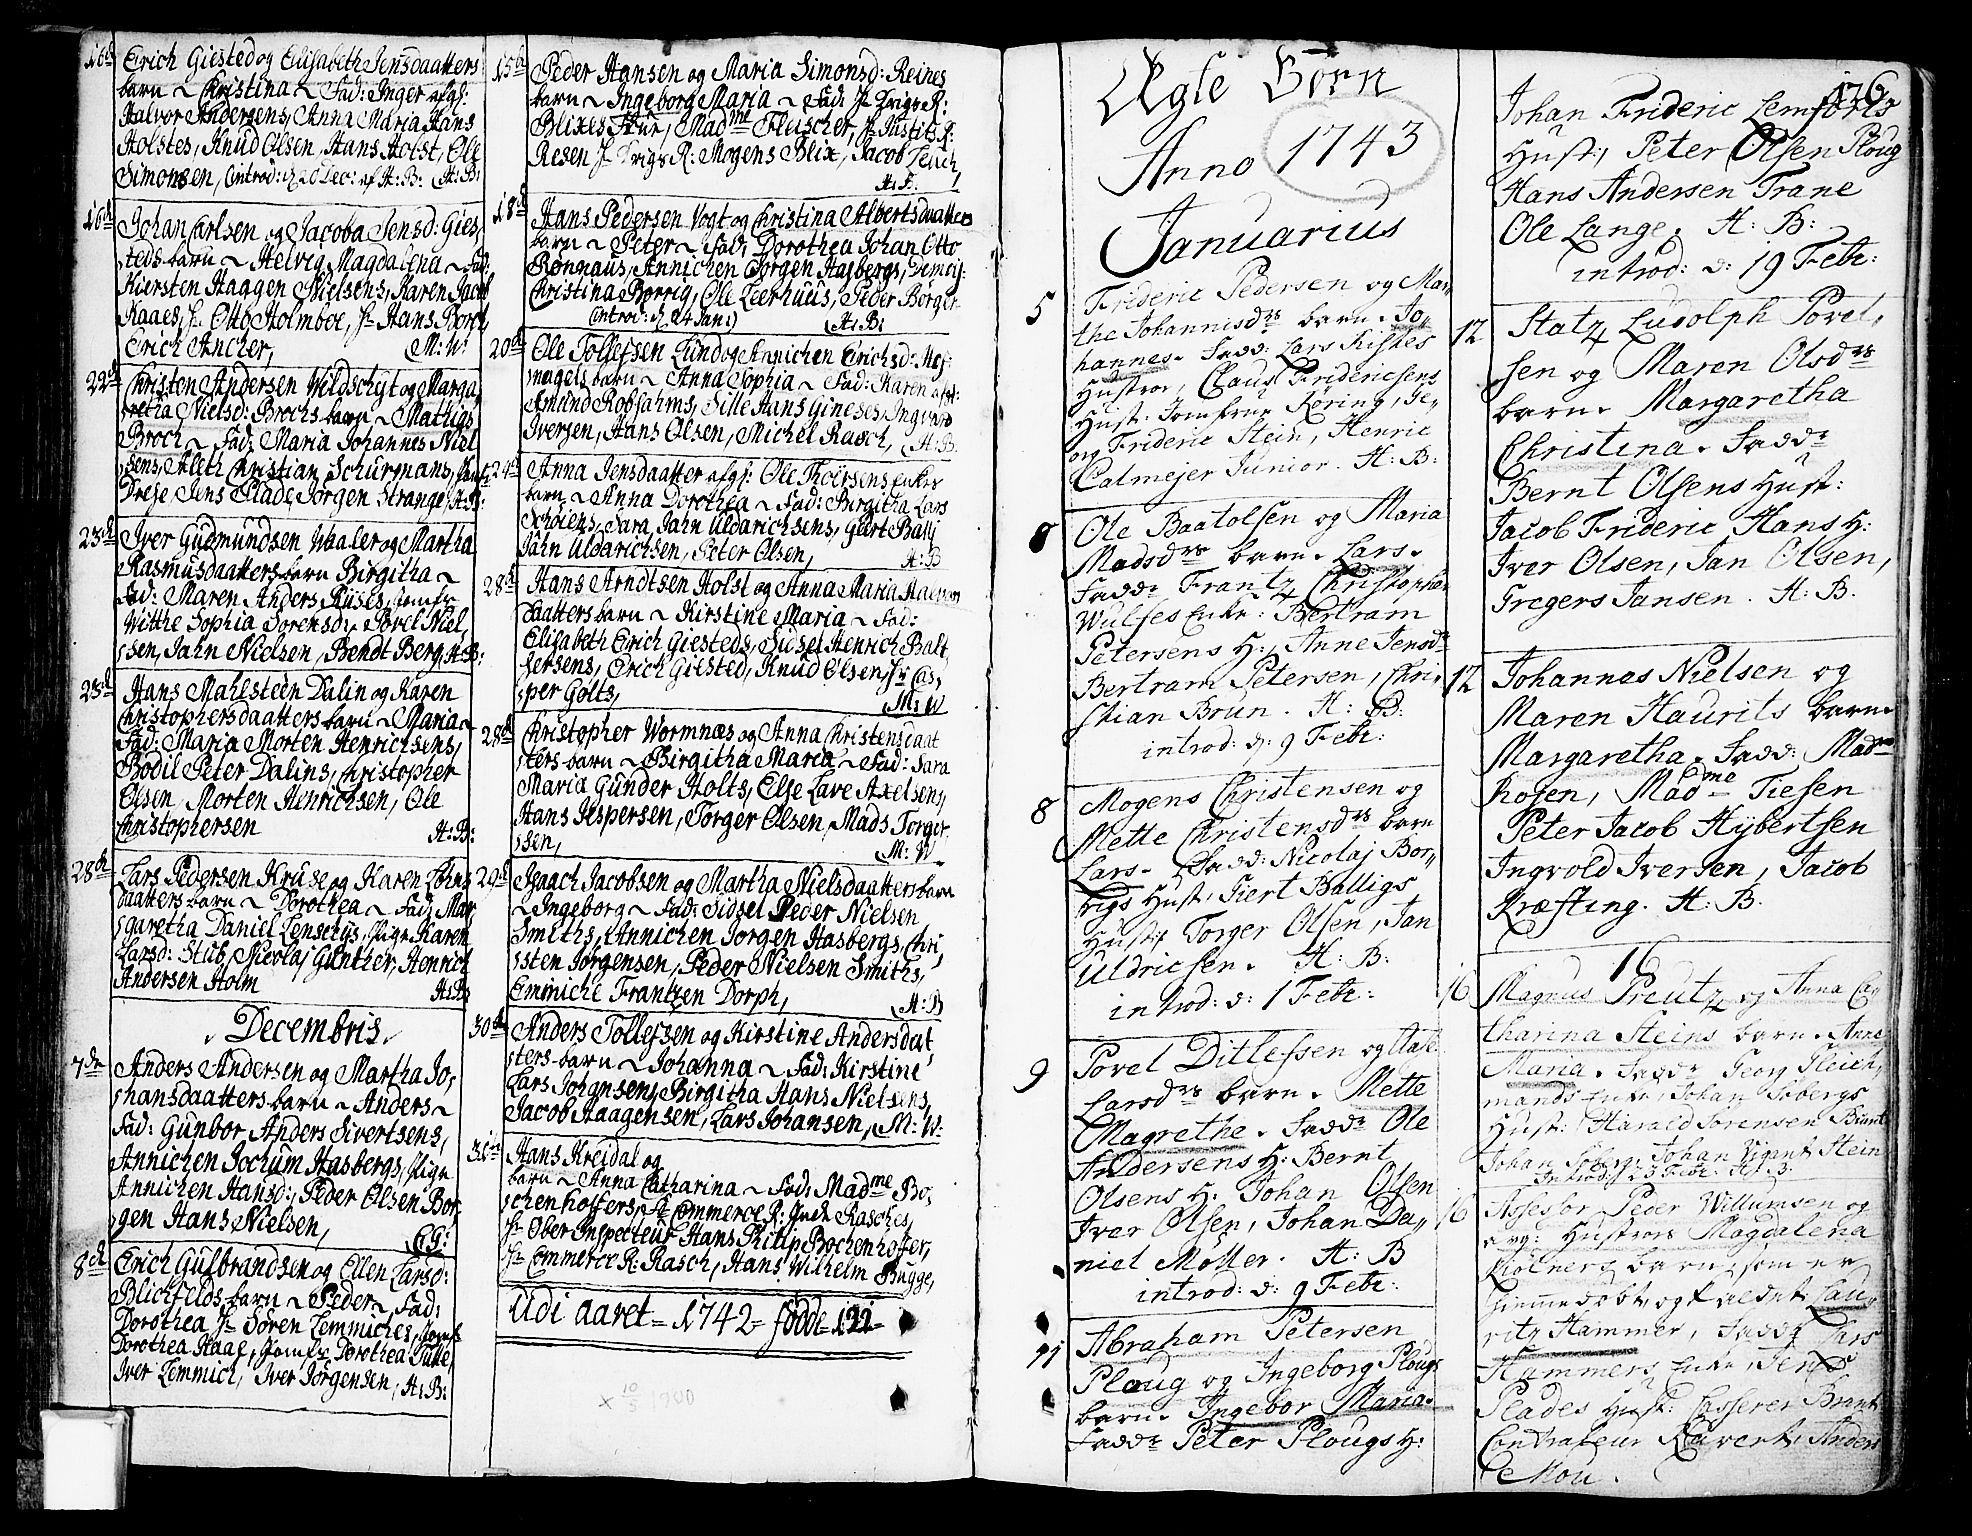 16d Erich Giested og Elisabeth Jensdaatters
barn ~ Christina ~ Fad: Inger afg:
Halvor Andersens, Anna Maria Hans
Holstes, Knud Olsen, Hans Holst, Ole
Simonsen, (introd: d 20 Dec: af H:B: H:B:
16d Johan Carlsen og Jacoba Jensd: Gies,
steds barn ~ Helvig Magdalena ~ Fad:
Kiersten Haagen Nielsens, Karen Jacob
Kaaes, Hr Otto Holmboe, Hr Hans Borch,
Erich Ancher, M: W:
22d Christen Andersen Wildschyt og Marga,
retha Nielsd: Brochs barn ~ Mathias
Broch ~ Fad: Maria Johannes Niel
sens, Aleth Christian Schurmans,
Dreje Jens Plade, Jørgen Strange, H:B:
23d Iver Gudmundsen Waaler og Martha
Rasmusdaatters barn Birgitha ~
Fad: Maren Anders Riises, Jomfr
Witthe Sophia Sørensd: Povel Niel,
sen, Jahn Nielsen, Bendt Berg, H:B:
23d Hans Mahlsteen Dalin og Karen
Christophersdaatters barn ~ Maria ~
Fad: Maria Morten Henrichsens,
Bodil Peter Dalins, Christopher
Olsen, Morten Henrichsen, Ole
Christophersen H:B:
28d Lars Pedersen Kruse og Karen Lørns
daatters barn ~ Dorothea ~ Fad: Mar,
garetha Daniel Lenschys, Pige Karen
Larsd: Stub, Nicolaj Günther, Henrich
Andersen Holm H:B:
Decembris
7de Anders Andersen og Martha Jo,
hansdaatters barn ~ Anders ~
Fad: Gunbor Anders Sivertsens,
Annichen Jochum Hasbergs, Pige
Annichen Hansd:, Peder Olsen Bor,
gen Hans Nielsen, CG:
8d Erich Gulbrandsen og Ellen Larsd:
Blichfelds barn ~ Peder ~ Fad:
Dorothea Hr Søren Lemmiches, Jomfr
Dorothea Haaf, Jomfr Dorothea Tulle,
Iver Lemmich, Iver Jørgensen, H:B:
15d Peder Hansen og Maria Simonsd: Reines
barn ~ Ingeborg Maria ~ Fad: Hr Krigs R:
Blixes Frue, Madme Fleischer, Hr Justitz R:
Resen Hr Krigs R: Mogens Blix, Jacob Teuch,
H: F.
18d Hans Pedersen Vogt og Christina Albertsdaatters
barn ~ Peter ~ Fad: Dorothea Johan Otto
Rønnaus, Annichen Jørgen Hasbergs, Demois:
Christina Borrig, Ole Leerhuus, Peder Børger
(introd: d 24 Jan:) H:B:
20d Ole Tollefsen Lund og Annichen Erichsd: Mes,
nagels barn ~ Anna Sophia ~ Fad: Karen afg:
Amund Robsahms, Sille Hans Gineses, Ingvord
Iversen, Hans Olsen, Michel Rasch, H:B:
24d Anna Jensdaatter afg: Ole Thorsens Enkes
barn ~ Anna Dorothea ~ Fad: Birgitha Lars
Schøiens, Sara Jahn Uldarichsens, Giert Ballj
Jahn Uldarichsen, Peter Olsen, H:B
28d Hans Arndtsen Holst og Anna Maria Halvors
daatters barn ~ Kirstine Maria ~ Fad:
Elisabeth Erich Giesteds, Sidsel Henrich Balt,
sersens, Erich Giested, Knud Olsen, Hr Cas,
per Golts, M: W
28d Christopher Wormnæs og Anna Christensdaat
ters barn ~ Birgitha Maria ~ Fad: Sara
Maria Gunder Holts, Else Lave Axelsens,
Hans Jespersen, Torger Olsen, Mads Torger,
sen, M: W
29d Isaach Jacobsen og Martha Nielsdaatters barn
~ Ingeborg ~ Fad: Sidsel Peder Nielsen
Smiths, Annichen Jørgen Hasbergs, Chri,
sten Jørgensen, Peder Nielsen Smiths,
Emmiche Frantzen Dorph, H:B
30d Anders Tollefsen og Kirstine Andersdat
ters barn ~ Johanna ~ Fad: Kirstine
Lars Johansens, Birgitha Hans Nielsens,
Jacob Haagensen, Lars Johansen, M: W:
31te Hans Kreidal og
barn ~ Anna Catharina ~ Fad: Madme Bo,
chenhoffers, Hr Commerce R: Rasches,
Hr Ober Inspecteur Hans Philip Bochenhoffer,
Hr Commerce R: Rasch, Hans Wilhelm Bugge,
Udi aaret = 1742 = fødde = 191 =
x 10/5 1900
Ægte Børn
Anno 1743
Januarius
5 Frideric Pedersen og Mar,,
the Johannisdrs barn. Jo,,
hannes. Fadd: Lars Riskes
Hustroe, Claus Fridericsens
Hust: Jomfrue Røring, Je,,
og Frideric Stein, Henric
Calmejer Junior. H: B:
8 Ole Baatolsen og Maria
Madsdrs barn. Lars.
Fadd: Frantz Christopher
Wulfes Enke. Bertram
Petersens H:, Anne Jensdr
Bertram Petersen, Chri,
stian Brun. H: B:
introd: d: 9 Febr:
8 Mogens Christensen og
Mette Christensdrs barn
Lars. Fadd: Nicolaj Bor,,
rigs Hust, Giert Balligs
Hust: Torger Olsen, Jan
Uldricsen. H: B:
introd: d: 1 Febr:
9 Povel Ditlefsen og Aase
Larsdrs barn. Mette
Magrethe. Fadd: Ole
Andersens H: Bernt
Olsens H: Johan Olsen
Iver Olsen, Johan Da,,
niel Møller. H: B
introd: d: 9 Febr:
11 Abraham Petersen
Ploug og Ingeborg Plougs
barn. Ingebor Maria.
Fadd: Peter Plougs H:
176
Johan Frideric Lemforts
Hust:, Peter Olsen Ploug
Hans Andersen Trane
Ole Lange. H: B:
introd: d: 19 Febr:
12 Statz Ludolph Povel,
sen og Maren Olsdrs
barn. Margaretha
Christina. Fadd:
Bernt Olsens Hust:
Jacob Frideric Hans H:
Iver Olsen, Jan Olsen,
Gregers Jansen. H: B.
12 Johannes Nielsen og
Maren Haurits barn.
Margaretha. Fadd: Madme
Rosen, Madme Tiesen
Peter Jacob Hybertsen
Ingvold Iversen, Jacob
Kræfting. H: B.
16
16 Magnus Preutz og Anna Ca,,
tharina Steins barn. Anne
Maria. Fadd: Georg Gleich,
mands Enke, Johan Sebergs
Hust: Harald Sørensen Brunt
Johan Seberg, Johan Vigant Stein
Introd: d 23 Febr: H: B.
16 Assessor Peder Willumsen og
Hustroes Magdalena
Kiølners barn, som er
hiemme døbt og kaldet Lau,,
ritz Hammer, Fadd: Lars
Hammers Enke, Jens
Plades Hust: Casserer Brant
Controleur Ravert, Anders
Mou.